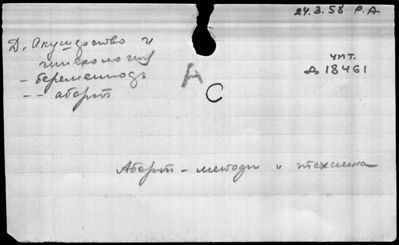 24.3.58 Р.А
Д. Акушерство и
гинекология
- беременность
- - аборт
А
С
чит.
Д 18461
Аборт - методы и техника